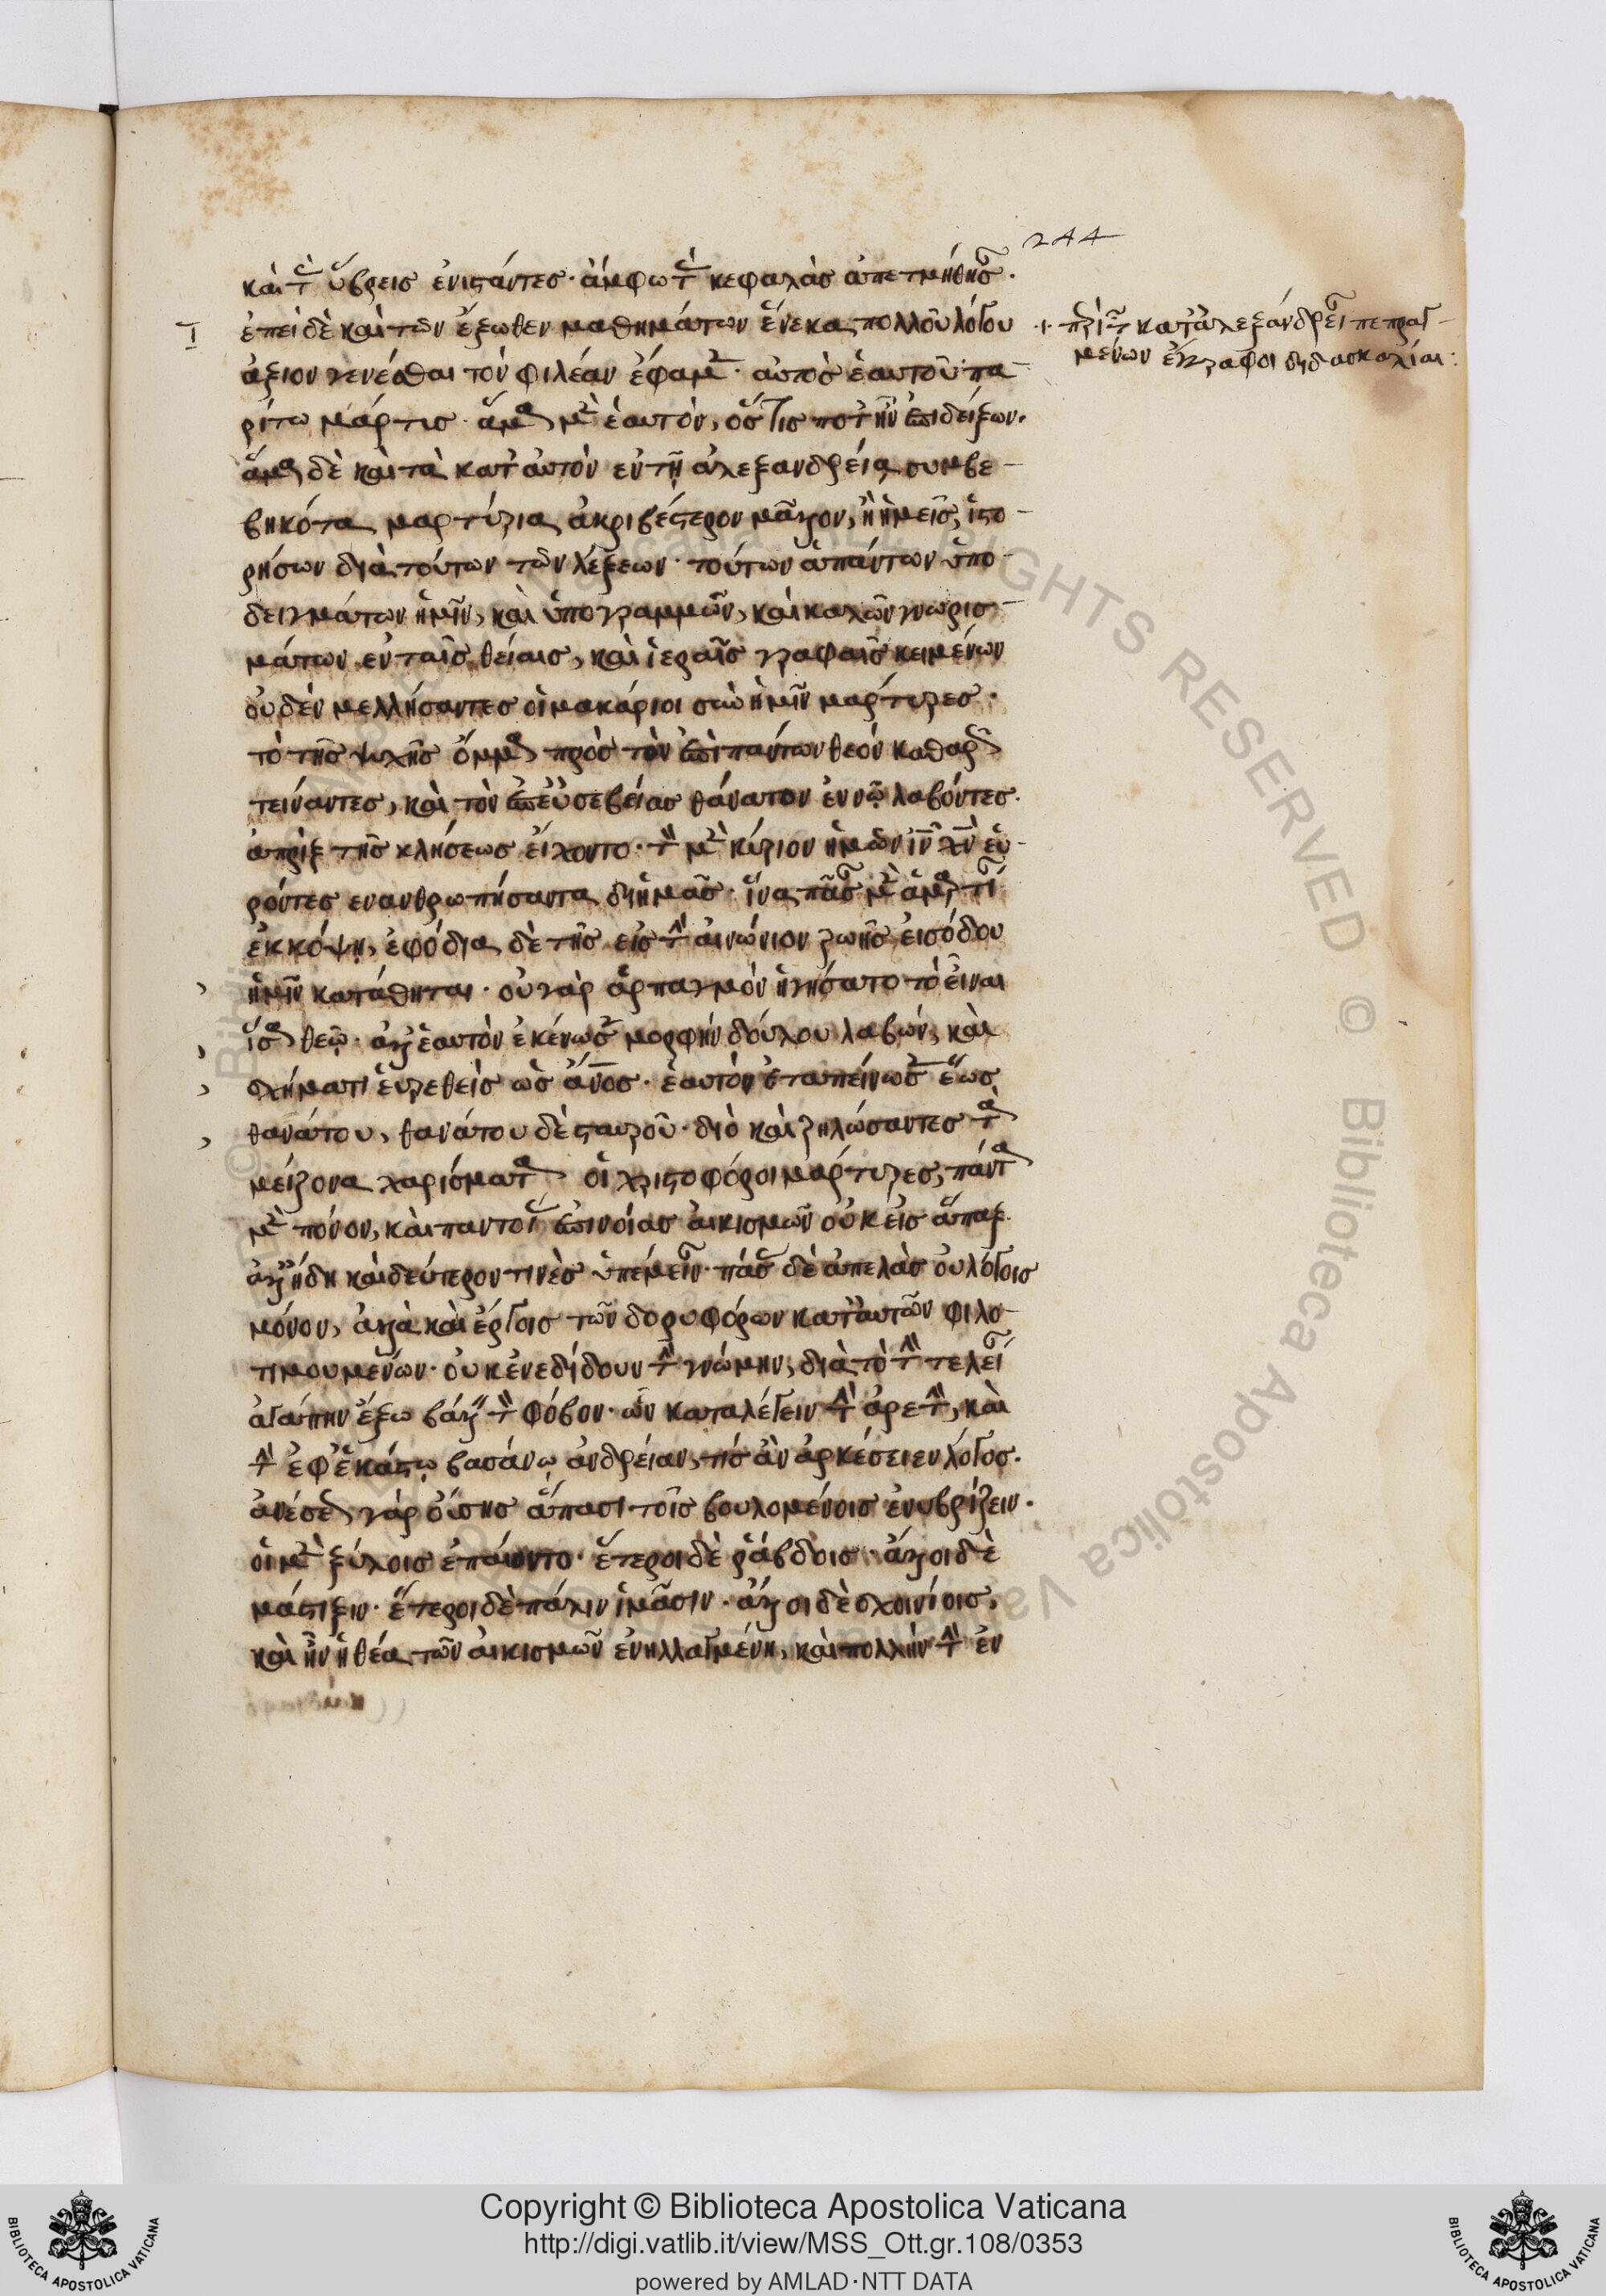 244
καὶ τὰς ὕβρεις ἐνιστάντες· ἄμφω τὰς κεφαλὰς ἀπετμήθησαν·
I ἐπεὶ δὲ καὶ τῶν ἔξωθεν μαθημάτων ἕνεκα πολλοῦ λόγου
ἄξιον γενέσθαι τὸν φιλέαν ἔφαμεν· αὐτὸς ἑαυτοῦ πα
ρίτω μάρτις· ἅμα μὲν ἑαυτὸν, ὅστις ποτ' ἦν ἐπιδείξων.
ἅμα δὲ καὶ τὰ κατ' αὐτὸν ἐν τῇ ἀλεξανδρεία συμβε
βηκότα μαρτύρια ἀκριβέστερον μᾶλλον, ἢ ἡμεῖς, ἱστο
ρήσων διὰ τούτων τῶν λέξεων· τούτων ἁπάντων ὑπο
δειγμάτων ἡμῖν, καὶ ὑπογραμμῶν, καὶ καλῶν γνωρισ
μάτων ἐν ταῖς θείαις, καὶ ἱεραῖς γραφαῖς κειμένων
οὐδὲν μελλήσαντες οἱ μακάριοι σὺν ἡμῖν μάρτυρες·
τὸ τῆς ψυχῆς ὄμμα πρὸς τὸν ἐπὶ πάντων θεὸν καθαρῶς
τείναντες, καὶ τὸν ἐπ' εὐσεβείας θάνατον ἐν νῷ λαβόντες.
ἀπρὶξ τῆς κλήσεως εἴχοντο· τὸν μὲν κύριον ἡμῶν ιν χν εὑ
ρόντες ενανθρωπήσαντα δι' ἡμᾶς· ἵνα πᾶσαν μὲν ἁμαρτίαν
ἐκκόψῃ, ἐφόδια δὲ τῆς εἰς τὴν αἰώνιον ζωῆς εἰσόδου
ἡμῖν κατάθηται· οὐ γὰρ ἁρπαγμὸν ἡγήσατο τὸ εἶναι
ἴσα θεῷ· ἀλλ' ἑαυτὸν ἐκένωσεν μορφὴν δούλου λαβών, καὶ
σχήματι εὑρεθεὶς ὡς ἄνος· ἑαυτὸν ἐταπείνωσεν ἕως
θανάτου, θανάτου δὲ σταυροῦ· διὸ καὶ ζηλώσαντες τὰ
μείζονα χαρίσματα οἱ χριστοφόροι μάρτυρες, πάντα
μὲν πόνον, καὶ παντοίας ἐπινοίας αἰκισμῶν οὐκ εἰς ἅπαξ.
ἀλλ' ἤδη καὶ δεύτερον τινὲς ὑπέμειναν· πάσας δὲ ἀπειλὰς οὐ λόγοις
μόνον, ἀλλὰ καὶ ἔργοις τῶν δορυφόρων κατ' αὐτῶν φιλο
τιμουμένων· οὐκ ἐνεδίδουν τὴν γνώμην, διὰ τὸ τὴν τελείαν
ἀγάπην ἔξω βάλλειν τὸν φόβον· ὧν καταλέγειν τὴν ἀρετὴν, καὶ
τὴν ἐφ' ἑκάστῳ βασάνῳ ἀνδρείαν, τίς ἂν ἀρκέσειεν λόγος.
ἀνέσεως γὰρ οὔσης ἅπασι τοῖς βουλομένοις ἐνυβρίζειν·
οἱ μὲν ξύλοις ἔπαιοντο· ἕτεροι δὲ ῥάβδοις· ἄλλοι δὲ
μάστιξιν· ἕτεροι δὲ πάλιν ἱμᾶσιν· ἄλλοι δὲ σχοινίοις.
καὶ ἦν ἡ θέα τῶν αἰκισμῶν ἐνηλλαγμένη, καὶ πολλὴν τὴν ἐν
·ι· περὶ τῶν κατὰ ἀλεξάνδρειαν πεπραγ
μένων ἔγγραφοι διδασκαλίαι:
Copyright © Biblioteca Apostolica Vaticana
http://digi.vatlib.it/view/MSS_Ott.gr.108/0353
powered by AMLAD·NTT DATA
BIBLIOTECA APOSTOLICA VATICANA
BIBLIOTECA APOSTOLICA VATICANA